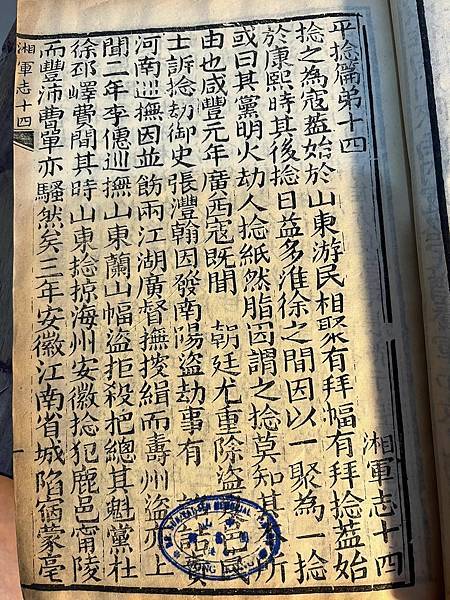 湘軍志十四
平捻篇弟十四
捻之為寇蓋始於山東游民相聚有拜幅有拜捻蓋始
於康熙時其後捻日益多淮徐之間因以一聚為一捻
或曰其黨明火劫人捻紙然脂因謂之捻莫知其所
由也咸豐元年廣西寇既聞 朝廷尤重除盜邑
士訴捻劫御史張灃翰因發南陽盜劫事有
河南巡撫因並飭兩江湖廣督撫緝而壽州盜亦上
聞二年李僡巡撫山東蘭山幅盜拒殺把總其魁黨社
徐邳嶧費閒其時山東捻掠海州安徽捻犯鹿邑甯陵
而豐沛曹單亦騷然矣三年安徽江南省城陷宿蒙亳
湘軍志十四
MEMORIAL